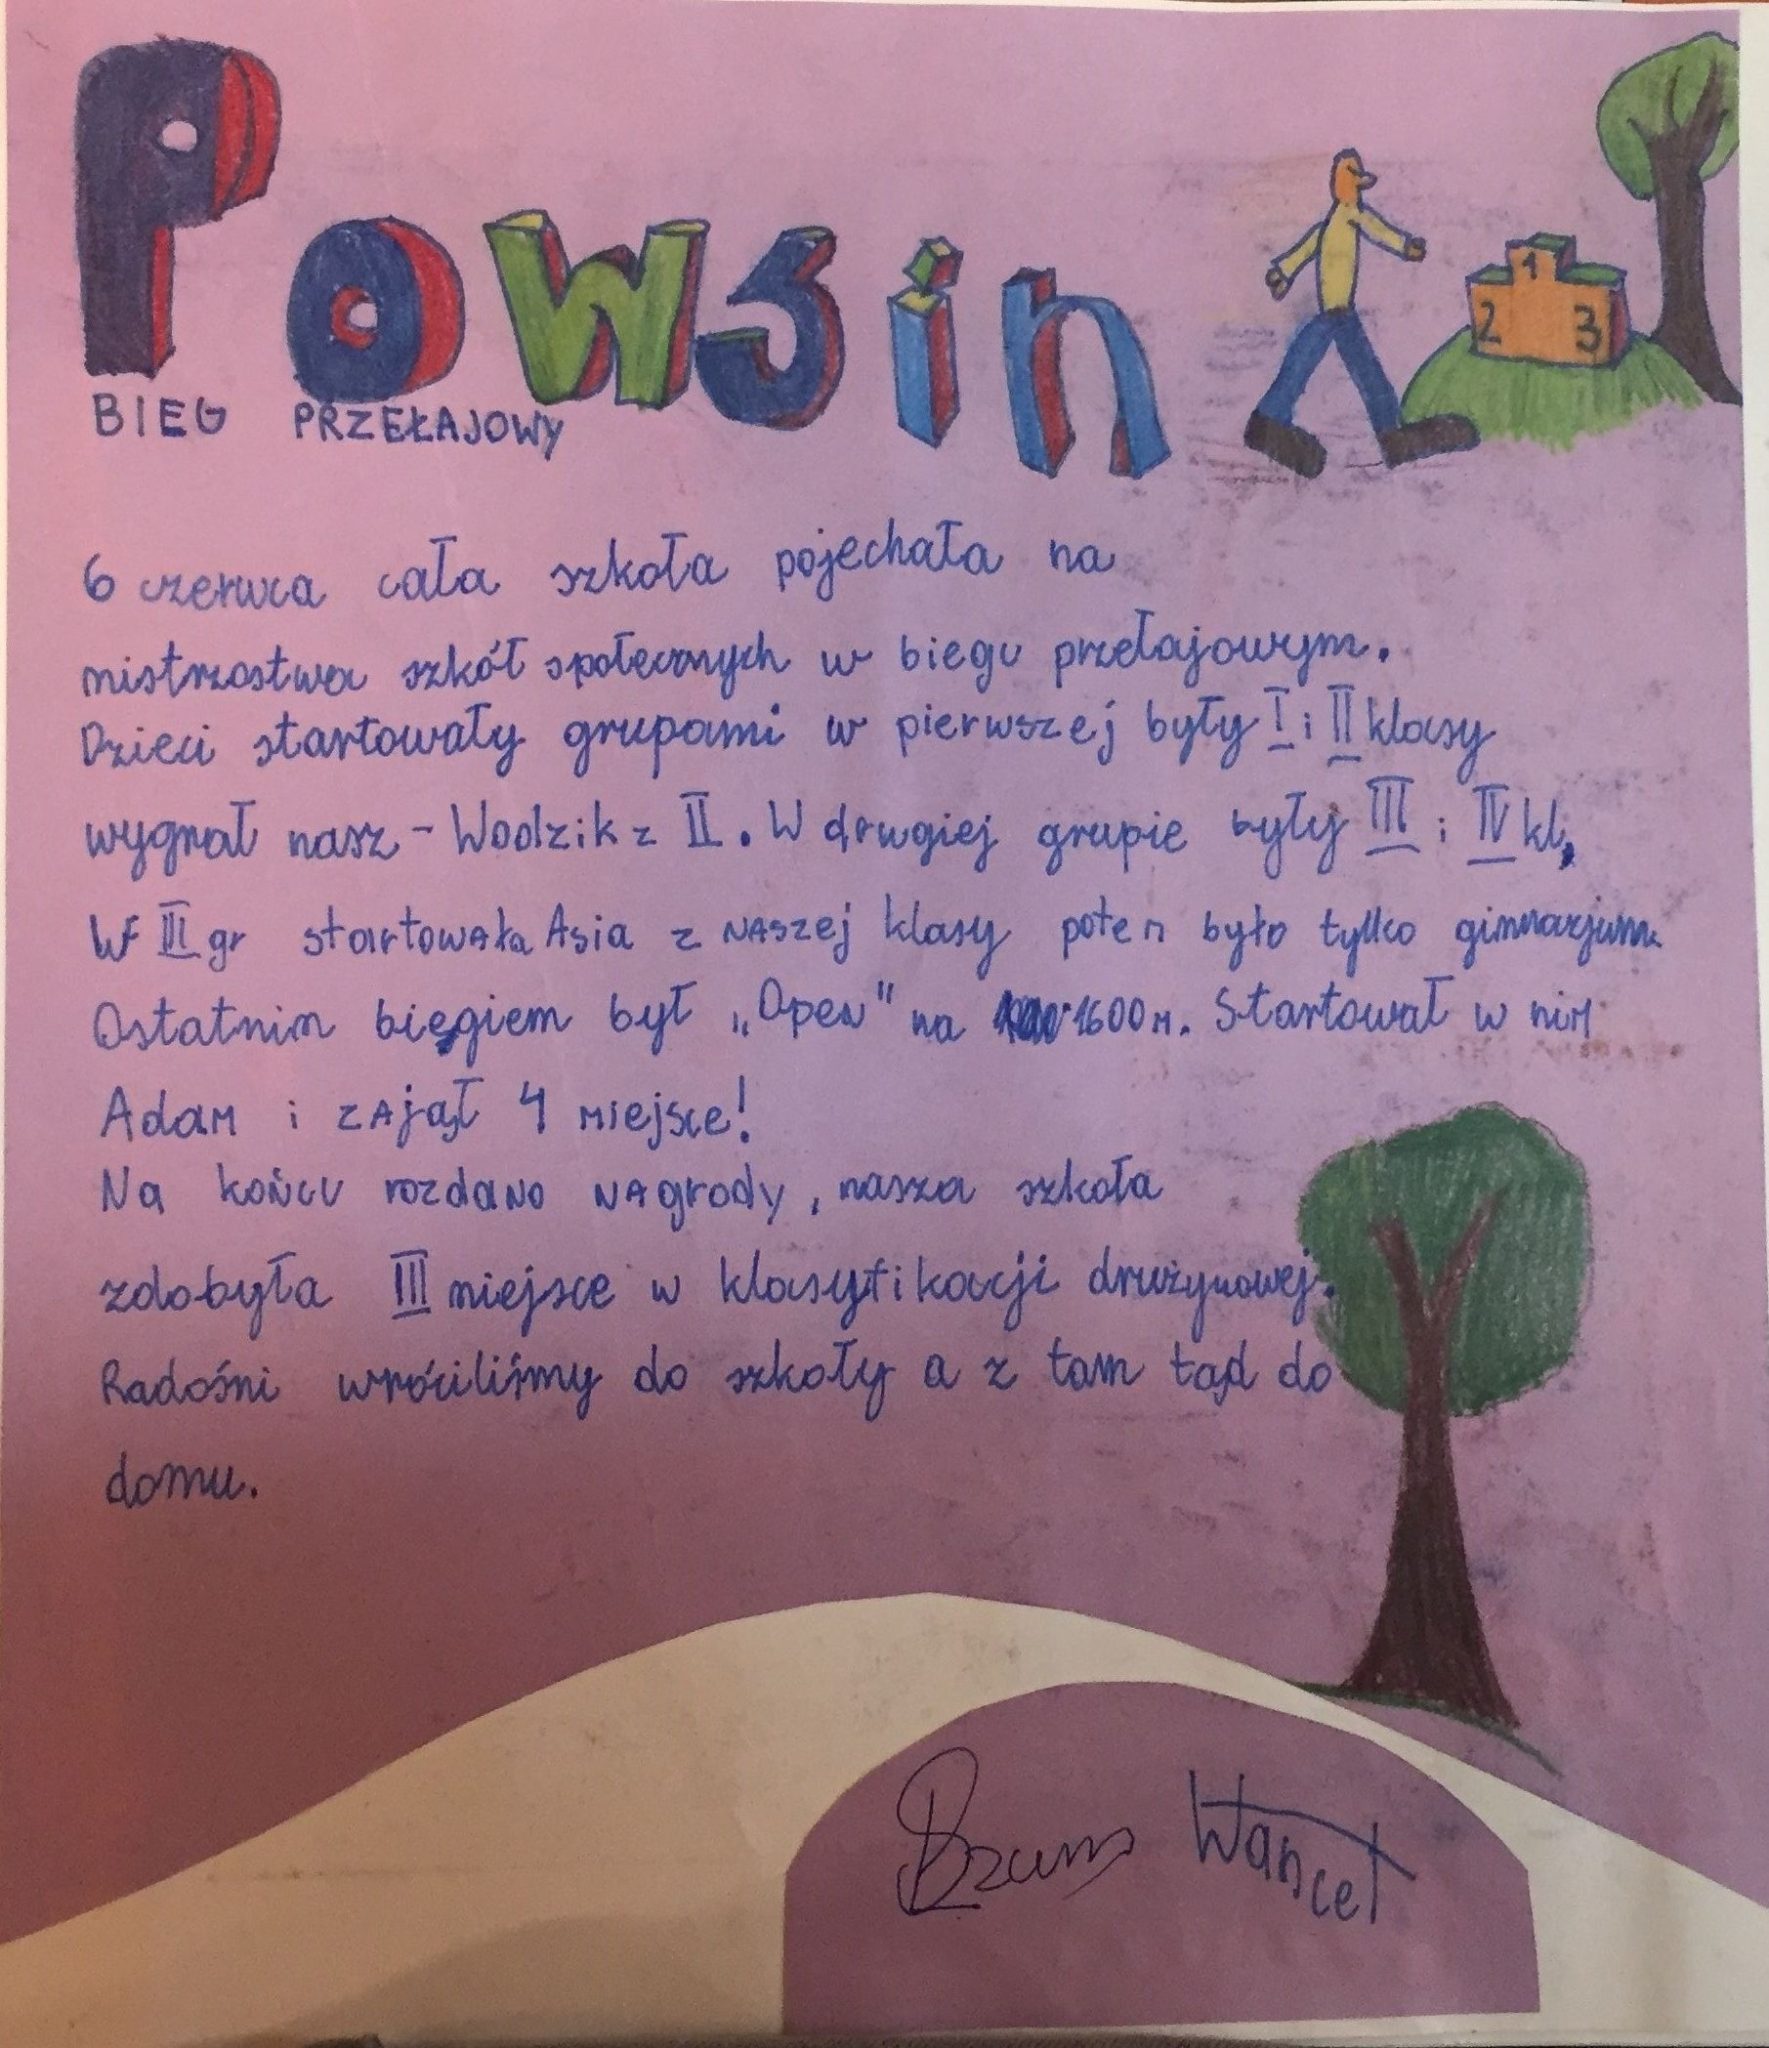 Powsin
1
2 3
BIEG PRZEŁAJOWY
6 czerwca cała szkoła pojechała na
mistrzostwa szkół społecznych w biegu przełajowym.
Dzieci startowały grupami w pierwszej były I i II klasy
wygrał nasz - Wodzik z II. W drugiej grupie były III i IV kl.
W III gr startowała Asia z naszej klasy potem było tylko gimnazjum
Ostatnim biegiem był „Open" na 1600m. Startował w nim
Adam i zajął 4 miejsce!
Na końcu rozdano nagrody, nasza szkoła
zdobyła III miejsce w klasyfikacji drużynowej.
Radośni wróciliśmy do szkoły a z tam tąd do
domu.